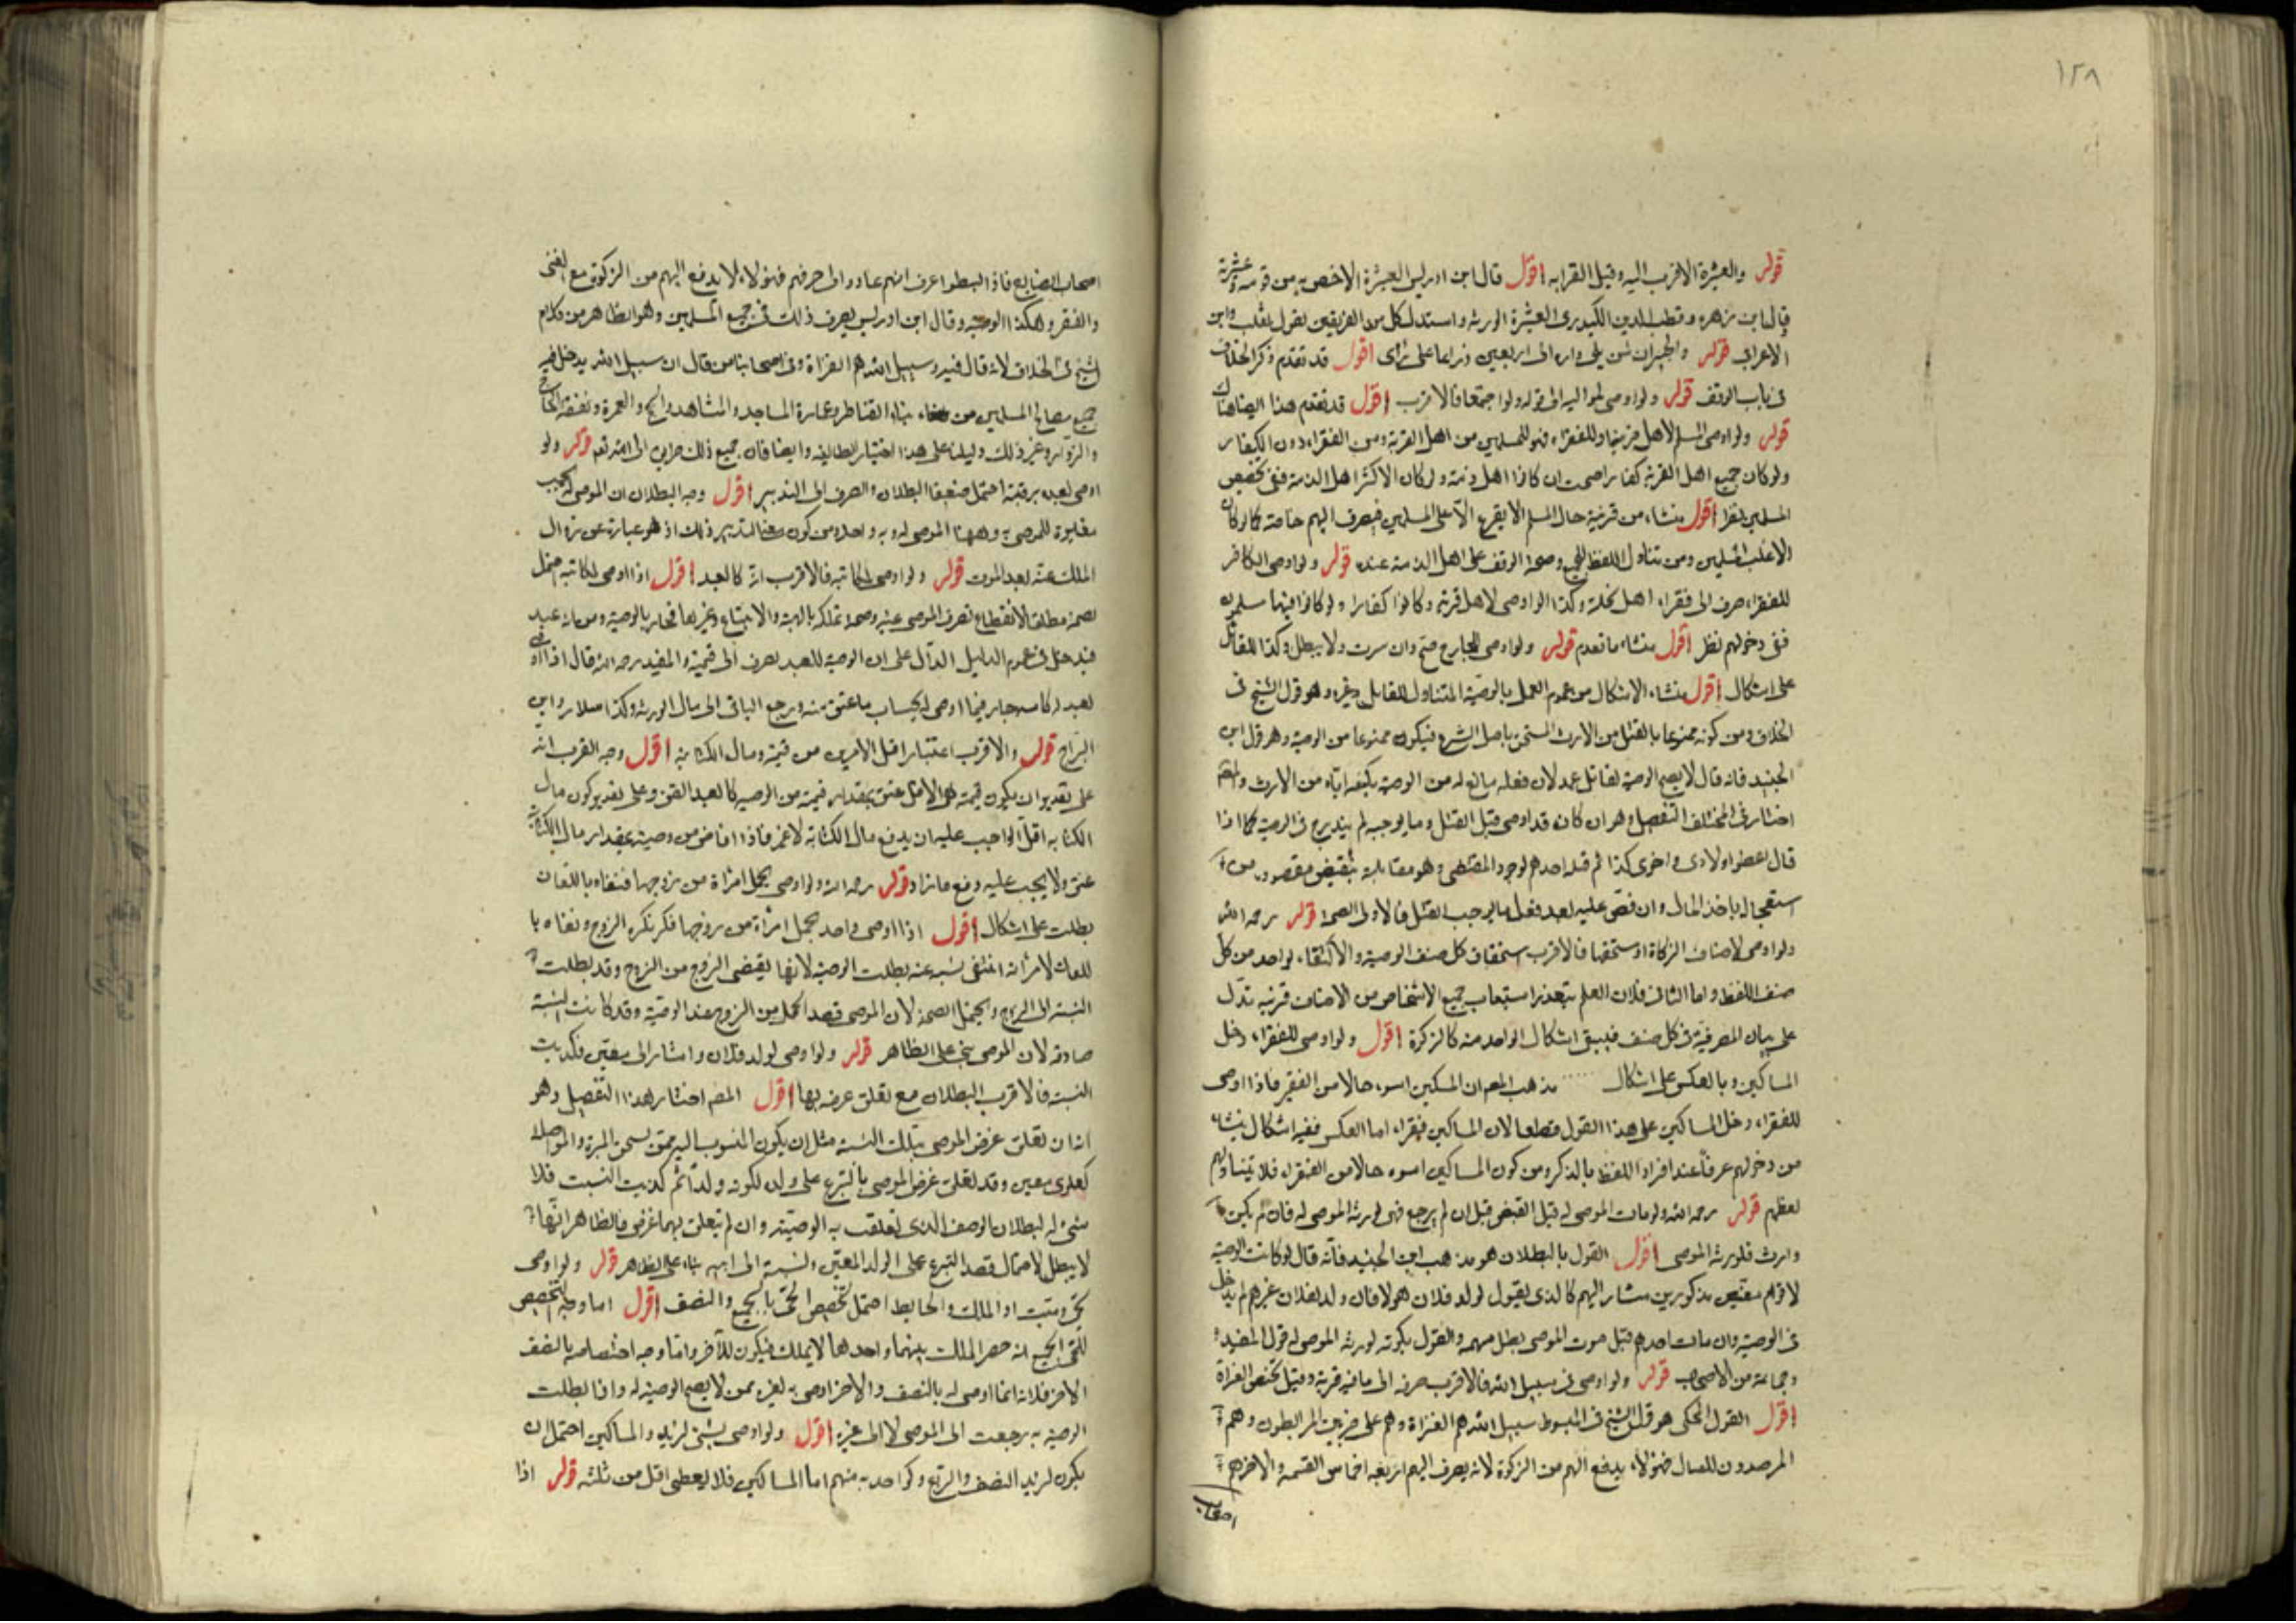 ١٢٨
قوله والعشيرة الاقرب اليه وقيل القرابه اقول قال ابن ادريس العشيرة الاخص به من قومه وعشيرته
قال ابن زهره وقطب الدين الكيدري العشيرة الورثه واستدل كل من الفريقين بقول ثعلب وابن
الاعرابى قوله والجيران لمن يلى داره الى اربعين ذراعا على راى اقول قد تقدم ذكر الخلاف
فى باب الوقف قوله ولو اوصى لمواليه الى قوله ولو اجتمعا فالاقرب اقول قد تقدم هذا ايضا هناك
قوله ولو اوصى المسلم لاهل قريته او للفقراء فهو للمسلمين من اهل القرية ومن الفقراء دون الكفار
ولو كان جميع اهل القرية كفارا صحت ان كانوا اهل ذمة ولو كان الاكثر اهل الذمة ففى تخصيص
المسلمين نظر اقول منشاء من قرينة حال المسلم الا يقع الا على المسلمين فيصرف اليهم خاصة كما لو كان
الاغلب المسلمين ومن تناول اللفظ للجميع وصحة الوقف على اهل الذمة عنده قوله ولو اوصى الكافر
للفقراء صرف الى فقراء اهل نحلته وكذا لو اوصى لاهل قريته وكانوا كفارا ولو كانوا فيها مسلمون
ففى دخولهم نظر اقول منشاء ما تقدم قوله ولو اوصى للجارح صح وان سرت ولا يبطل وكذا للقاتل
على اشكال اقول منشاء الاشكال من عموم العمل بالوصية المتناول للقاتل وغيره وهو قول الشيخ فى
الخلاف ومن كونه ممنوعا بالقتل من الارث المستحق باصل الشرع فيكون ممنوعا من الوصية وهو قول ابن
الجنيد فانه قال لا يصح الوصية لقاتل عمد لان فعله مانع له من الوصية كمنعه اياه من الارث والمصنف
اختار فى المختلف التفصيل وهو ان كان قد اوصى قبل القتل وما يوجبه لم يندرج فى الوصية كما اذا
قال اعطوا اولادى واخوى كذا ثم قتله احدهم لوجود المقتضى وهو مقابلته بنقيض مقصوده من
استعجال باخذ المال وان نص عليه بعد فعل ما يوجب القتل فالاولى الصحة قوله رحمه الله
ولو اوصى لاصناف الزكاة او مستحقها فالاقرب استحقاق كل صنف الوصية والاكتفاء بواحد من كل
صنف اللفظ واما الثانى فلان العلم بتعذر استيعاب جميع الاشخاص من الاصناف قرينة تدل
على بيان المصرفية فى كل صنف فيبقى اشكال الواحد منه كالزكوة اقول ولو اوصى للفقراء دخل
المساكين وبالعكس على اشكال مذهب المصنف ان المسكين اسوء حالا من الفقير فاذا اوصى
للفقراء دخل المساكين على هذا القول قطعا لان المساكين فقراء اما العكس ففيه اشكال ينشاء
من دخولهم عرفا عند افراد اللفظ بالذكر ومن كون المساكين اسوء حالا من الفقراء فلا يتناولهم
لفظهم قوله رحمه الله ولو مات الموصى له قبل القبض قبل ان لم يرجع فهى لورثة الموصى له فان لم يكن له
وارث فلورثة الموصى اقول القول بالبطلان هو مذهب ابن الجنيد فانه قال لو كانت الوصية
لاقوام معينين مذكورين مشار اليهم كالذى يقول لولد فلان هولا فان ولد لفلان غيرهم لم يدخل
فى الوصية وان مات احدهم قبل موت الموصى بطل سهمه والقول بكونه لورثة الموصى له قول المفيد
وجماعة من الاصحاب قوله ولو اوصى فى سبيل الله فالاقرب صرفه الى ما فيه قربة وقيل يختص الغزاة
اقول القول المحكى هو قول الشيخ فى المبسوط سبيل الله هم الغزاة وهم على ضربين المرابطون وهم
المرصدون للقتال فهؤلاء يدفع اليهم من الزكوة لانه يصرف اليهم اربعه اخماس القسمه والاخر هم
اصحاب
اصحاب الصنايع فاذا انبسطوا عرف انهم عادوا الى حرفهم فهؤلاء لا يدفع اليهم من الزكوة مع الغنى
والفقر وهكذا الوصيه وقال ابن ادريس يصرف ذلك فى جميع المسلمين وهو الظاهر من كلام
الشيخ فى الخلاف لانه قال فيه وسبيل الله هم الغزاة وفى اصحابنا من قال ان سبيل الله يدخل فيه
جميع مصالح المسلمين من بناء القناطر وعمارة المساجد والمشاهد والحج والعمرة ونفقة الحاج
والزوار وغير ذلك دليلنا على هذا اختيار الطايفه وايضا فان جميع ذلك طرايق الى الله نعم قوله ولو
اوصى لعبده برقبته احتمل ضعيفا البطلان والصرف الى التدبير اقول وجه البطلان ان الموصى له يجب
مغايرة للموصى به وههنا الموصى له وبه واحد ومن كون معنى التدبير ذلك اذ هو عبارة عن زوال
الملك عنه بعد الموت قوله ولو اوصى لمكاتبه فالاقرب انه كالعبد اقول اذا اوصى لمكاتبه احتمل
لصحة مطلقا لانقطاع تصرف الموصى عنه وصحة تملكه بالهبة والابتياع وغيرها فجاز بالوصية ومن انه عبد
فيدخل فى عموم الدليل الدال على ان الوصية للعبد تصرف الى قيمته والمفيد رحمه الله قال اذا اوصى
لعبد او كاتبه جاز فيما اوصى له بحساب ما عتق منه ويرجع الباقى الى مال الورثة وكذا سلار وابن
البراج قوله والاقرب اعتبار اقل الامرين من قيمته ومال الكتابة اقول وجه القرب انه
على تقدير ان يكون قيمته هى الاقل عتق بمقدار قيمته من الوصيه كالعبد القن وعلى تقدير كون مال
الكتابه اقل الواجب عليه ان يدفع مال الكتابة لا غير فاذا افاض من وصيته بمقدار مال الكتابة
عتق ولا يجب عليه دفع ما زاد قوله رحمه الله ولو اوصى لحمل امراة من زوجها فنفاه باللعان
بطلت على اشكال اقول اذا اوصى واحد لحمل امراة من زوجها فانكره الزوج ونفاه با
للعان لامراته انتفى نسبه عنه بطلت الوصية لانها يقتضى الزوج من الزوج وقد بطلت
النسبة الى الزوج ويحتمل الصحة لان الموصى قصد الحمل من الزوج عند الوصية وقد كانت النسبة
صادقة لان الموصى بنى على الظاهر قوله ولو اوصى لولد فلان واشار الى معين فكذبت
النسبة فالاقرب البطلان مع تعلق غرضه بها اقول المصنف اختار هذا التفصيل وهو
انه ان تعلق غرض الموصى بتلك النسبة مثل ان يكون المنسوب اليه ممن يستحق المبرة والمواصلة
كعلوى معين وقد تعلق غرض الموصى بالتبرع على ولده لكونه ولدا ثم كذبت النسبة فلا
شىء له لبطلان الوصف الذى تعلقت به الوصية وان لم يتعلق بهما غرض فالظاهر انها
لا يبطل لاحتمال قصد التبرع على الولد المعين ونسبة الى ابيه بناء على الظاهر قوله ولو اوصى
لحى وميت او الملك والحايط احتمل تخصيص الحى بالجميع والنصف اقول اما وجه التخصيص
للحى بالجميع انه حصر الملك بينهما واحدهما لا يملك فيكون للآخر واما وجه اختصاصه بالنصف
الاخر فلانه انما اوصى له بالنصف والاخر اوصى به لغيره ممن لا يصح الوصية له واذا بطلت
الوصية به رجعت الى الموصى لا الى غيره اقول ولو اوصى بشىء لزيد والمساكين احتمل ان
يكون لزيد النصف والربع وكواحد منهم اما المساكين فلا يعطى اقل من ثلثه قوله اذا